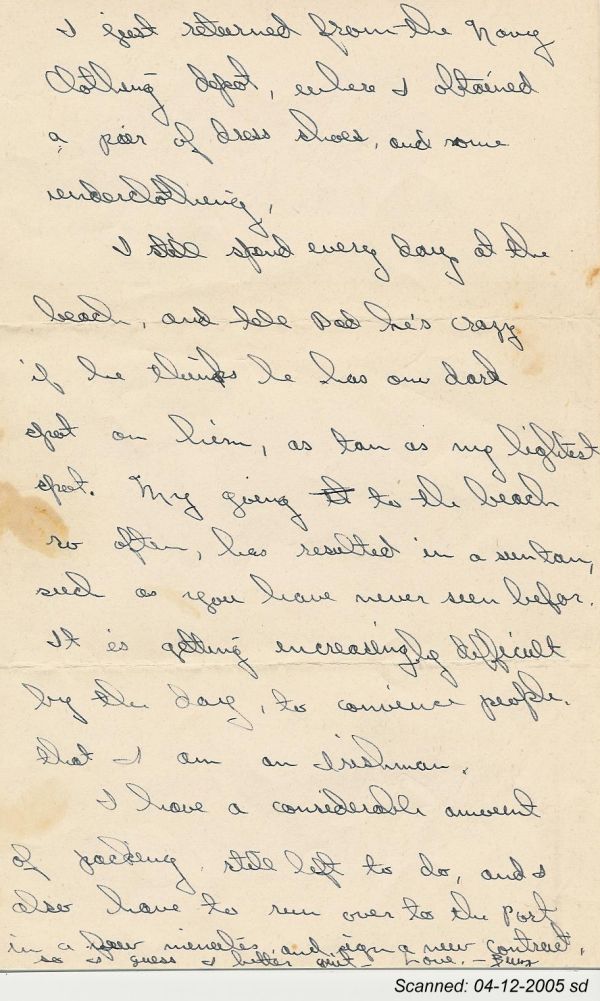 I just returned from the Navy
Clothing depot, where I obtained
a pair of dress shoes, and some
underclothing,
I still spend every day at the
beach, and tell Dad he's crazy
if he thinks he has one dark
spot on him, as tan as my lightest
spot. My going to the beach
so often, has resulted in a suntan,
such as you have never seen befor.
It is getting increasingly difficult
by the day, to convience people,
that I am an Irishman.
I have a considerable amount
of packing still left to do, and I
also have to run over to the Port
in a few minutes, and sign a new contract,
so I guess I better quit - Love, -
Scanned: 04-12-2005 sd